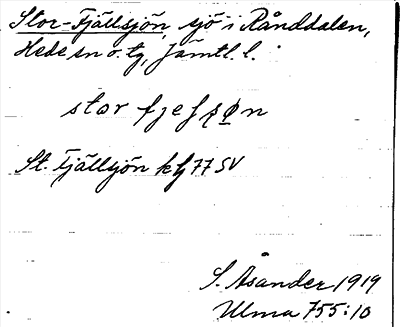 Stor-Fjällsjön, sjö i Rånddalen,
Hede sn o. tg, Jämtl. l.
stor fjefsøn
St. Fjällsjön kbl 77 SV
S. Åsander 1919
Ulma 755:10